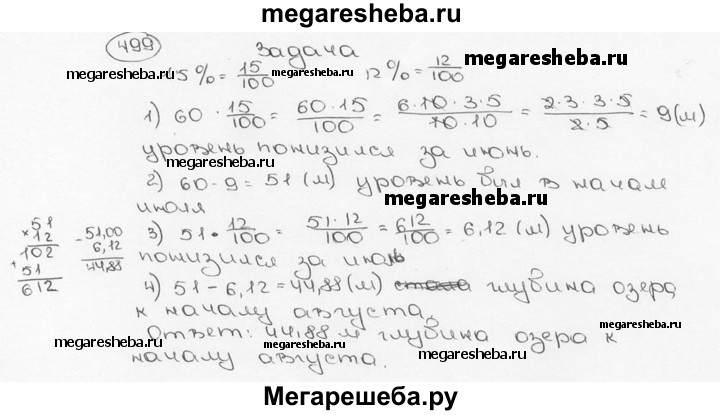 megaresheba.ru
499 Задача
megaresheba.ru 15% = 15/100 megaresheba.ru 12% = 12/100 megaresheba.ru
1) 60 · 15/100 = 60·15/100 = 6·10·3·5/10·10 = 2·3·3·5/2·5 = 9 (м)
уровень понизился за июнь.
megaresheba.ru
2) 60-9=51 (м) уровень был в начале
megaresheba.ru
июля
51 × 12 102 + 51 612
- 51,00 6,12 44,88
3) 51 · 12/100 = 51·12/100 = 612/100 = 6,12 (м) уровень
понизился за июль megaresheba.ru
4) 51-6,12=44,88 (м) глубина озера
к началу августа.
megaresheba.ru
Ответ: 44,88 м глубина озера к
megaresheba.ru megaresheba.ru
началу августа.
Мегарешеба.ру